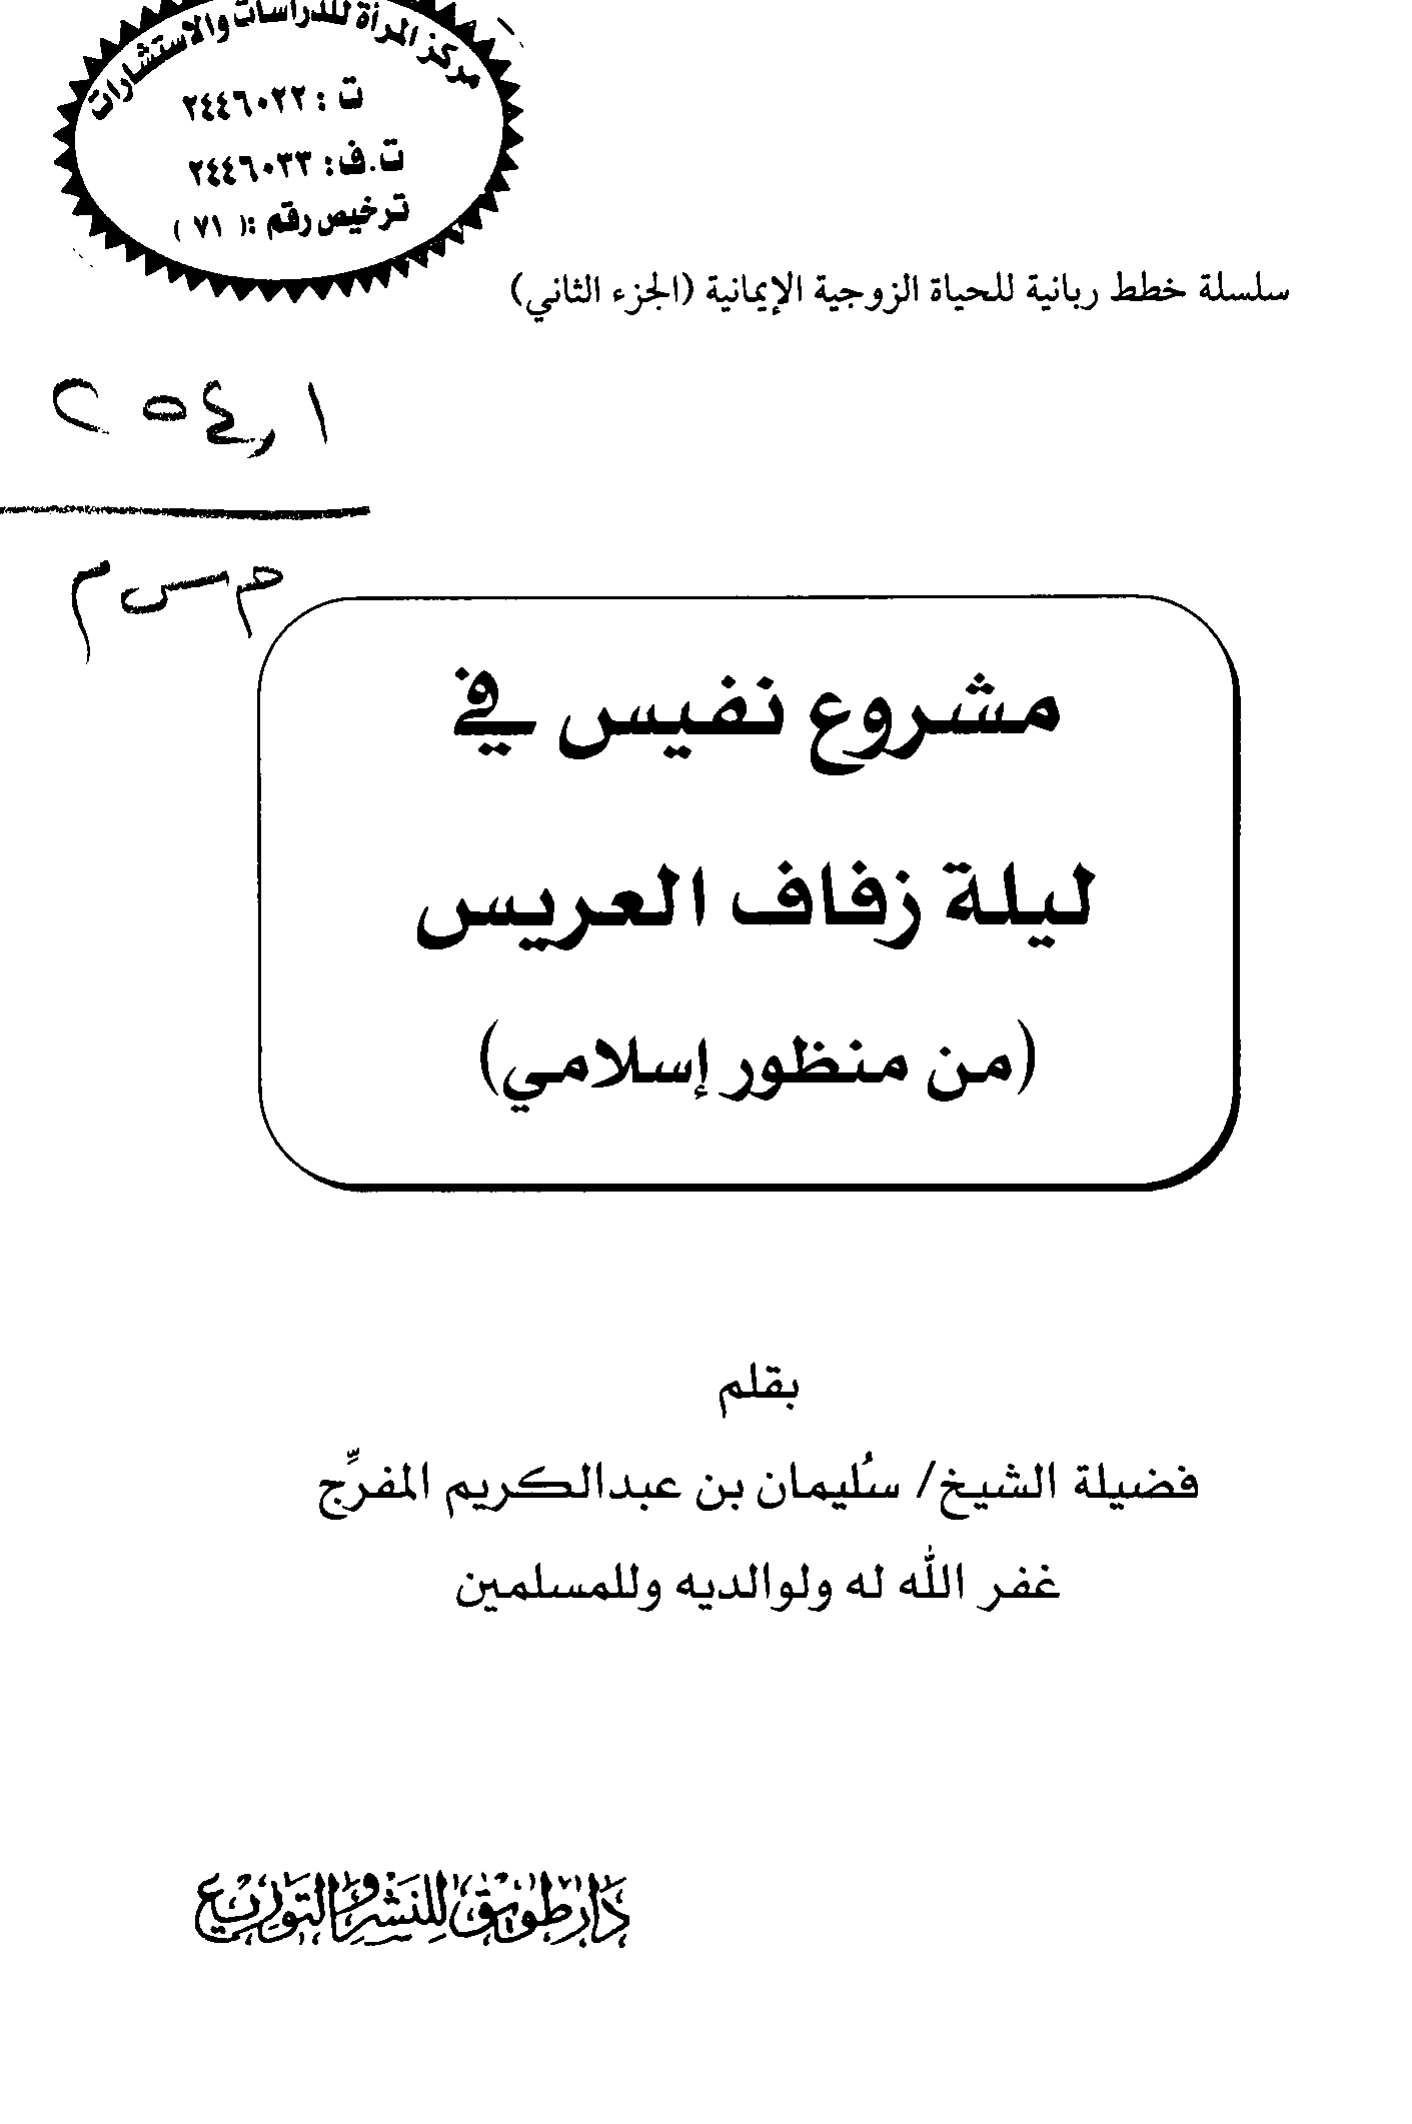 مركز المرأة للدراسات والاستشارات
ت : ٢٤٤٦٠٢٢
ت.ف: ٢٤٤٦٠٣٣
ترخيص رقم :( ٧١ )
سلسلة خطط ربانية للحياة الزوجية الإيمانية (الجزء الثاني)
م س م
مشروع نفيس في
ليلة زفاف العريس
(من منظور إسلامي)
بقلم
فضيلة الشيخ/ سُليمان بن عبدالكريم المفرِّج
غفر الله له ولوالديه وللمسلمين
دار طويق للنشر والتوزيع